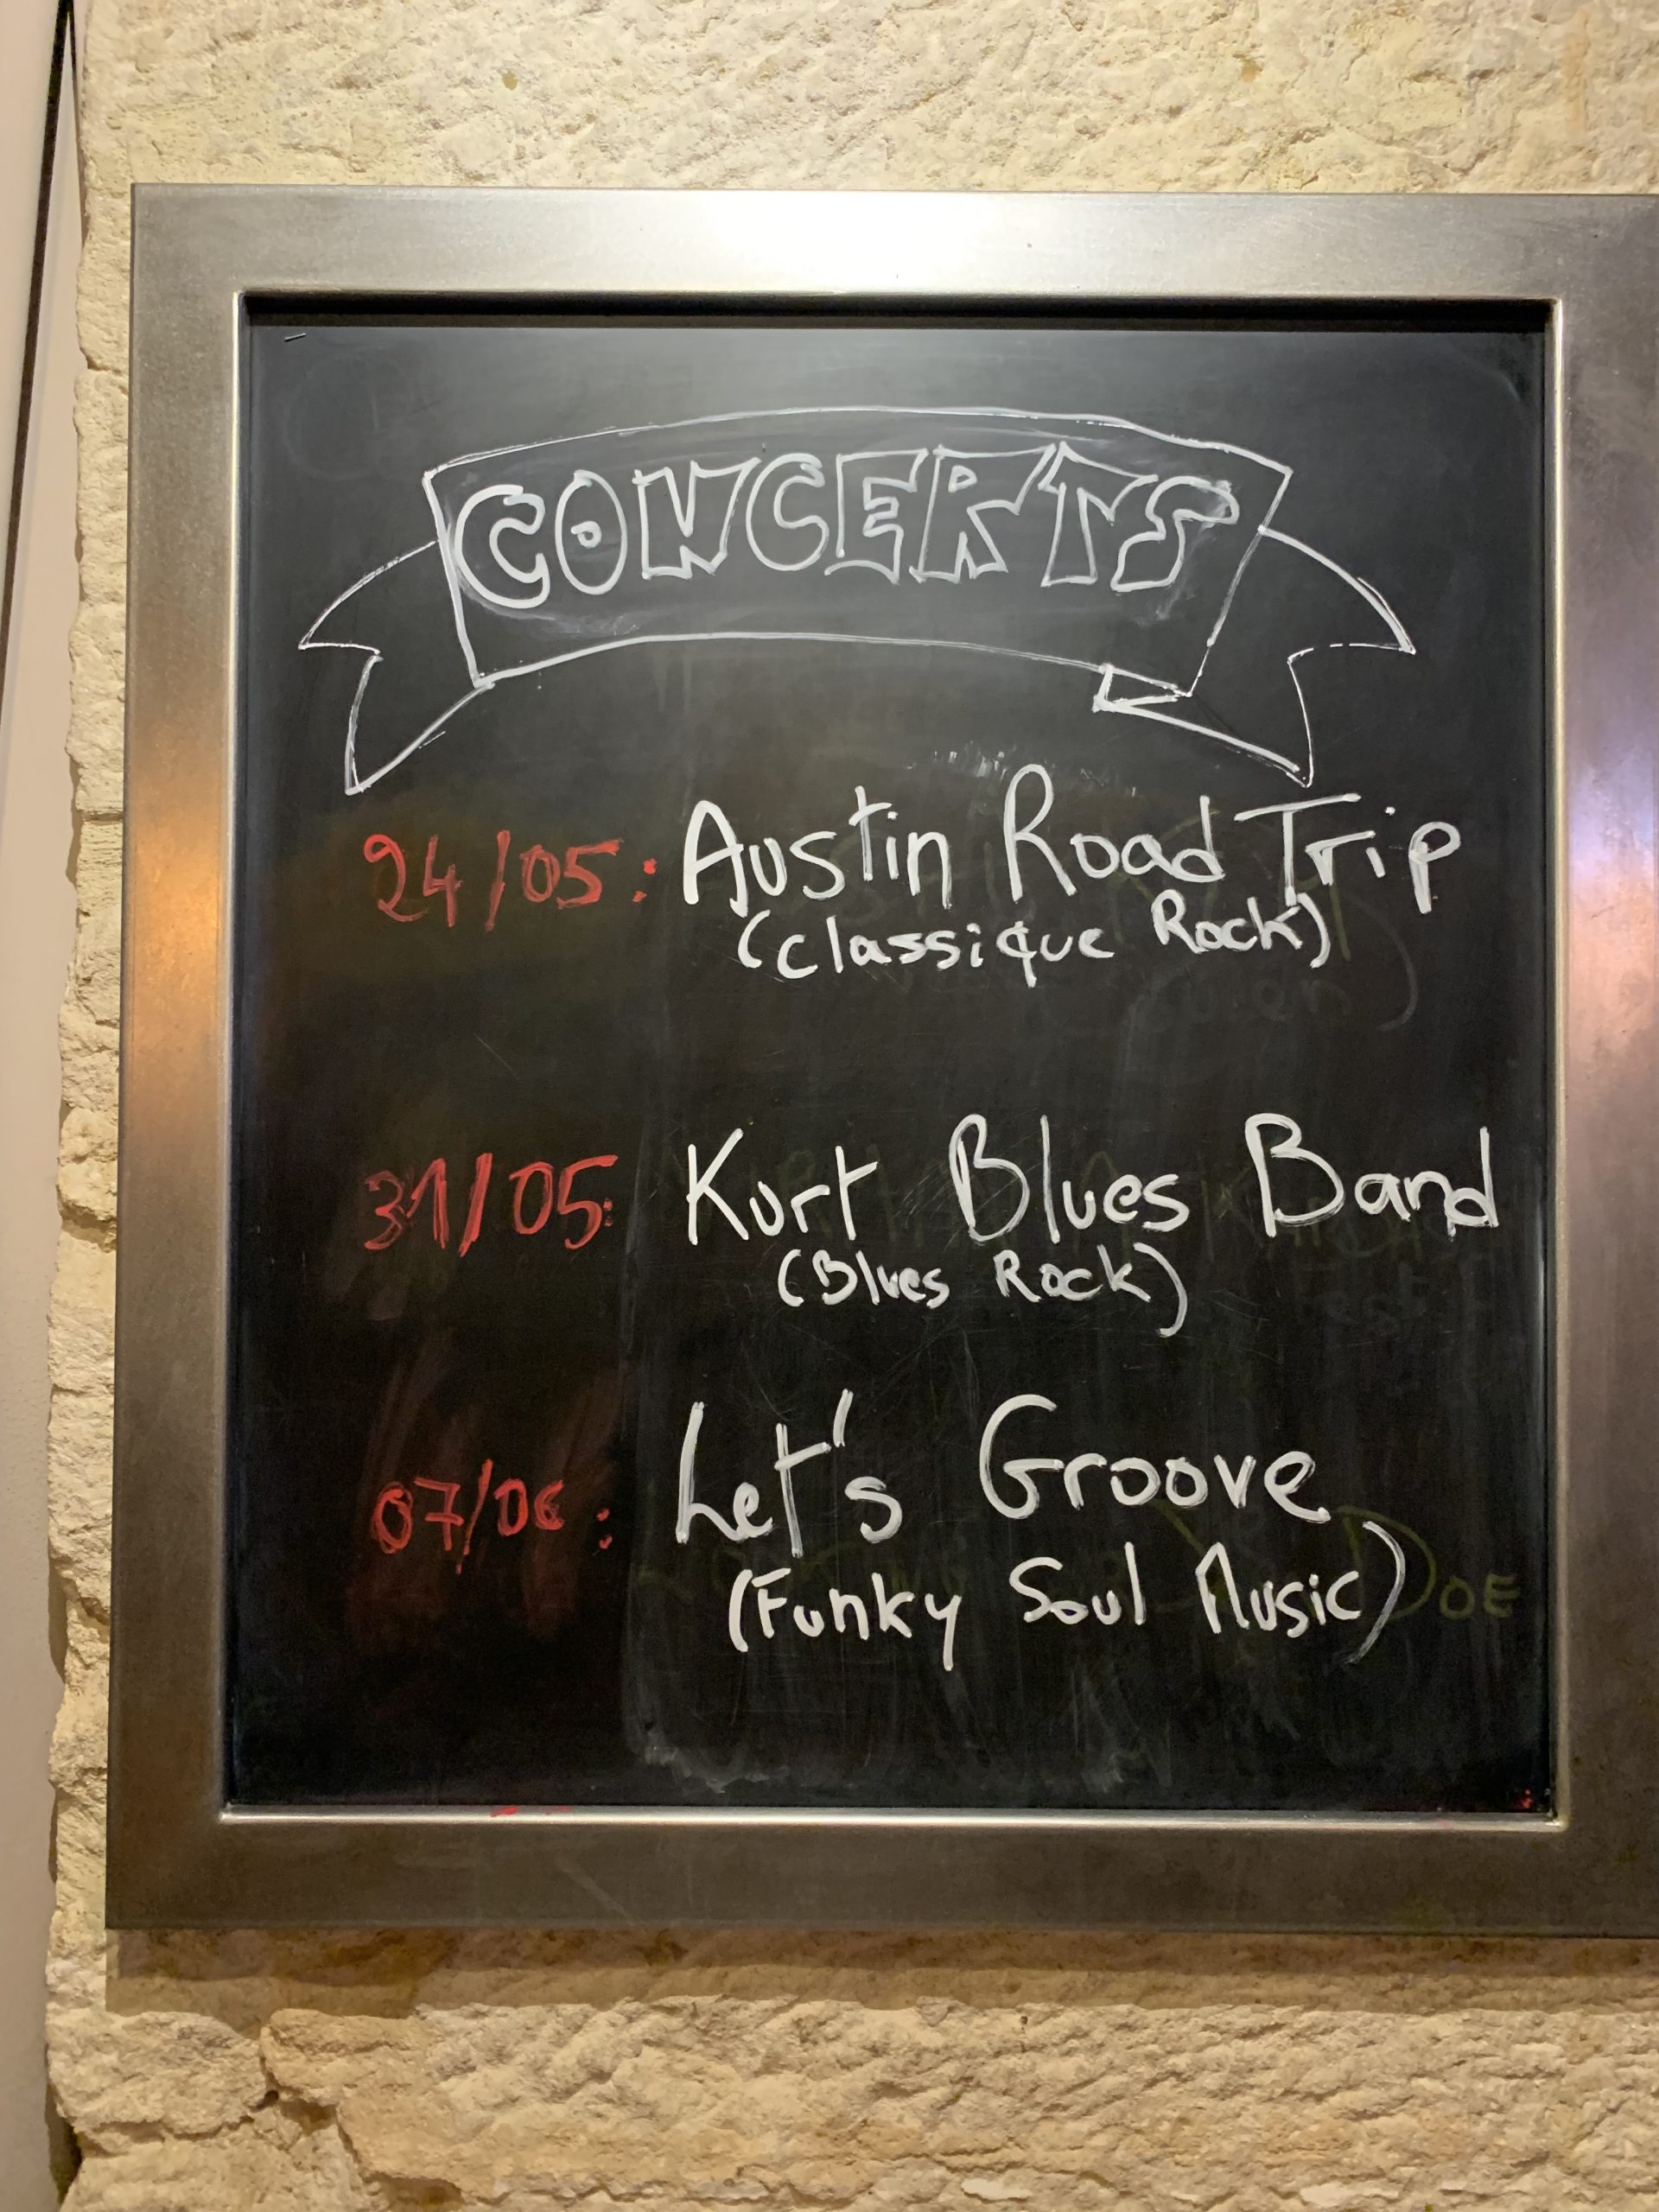 CONCERTS
24/05: Austin Road Trip
(Classique Rock)
31/05: Kurt Blues Band
(Blues Rock)
07/06: Let's Groove
(Funky Soul Music)
DOE